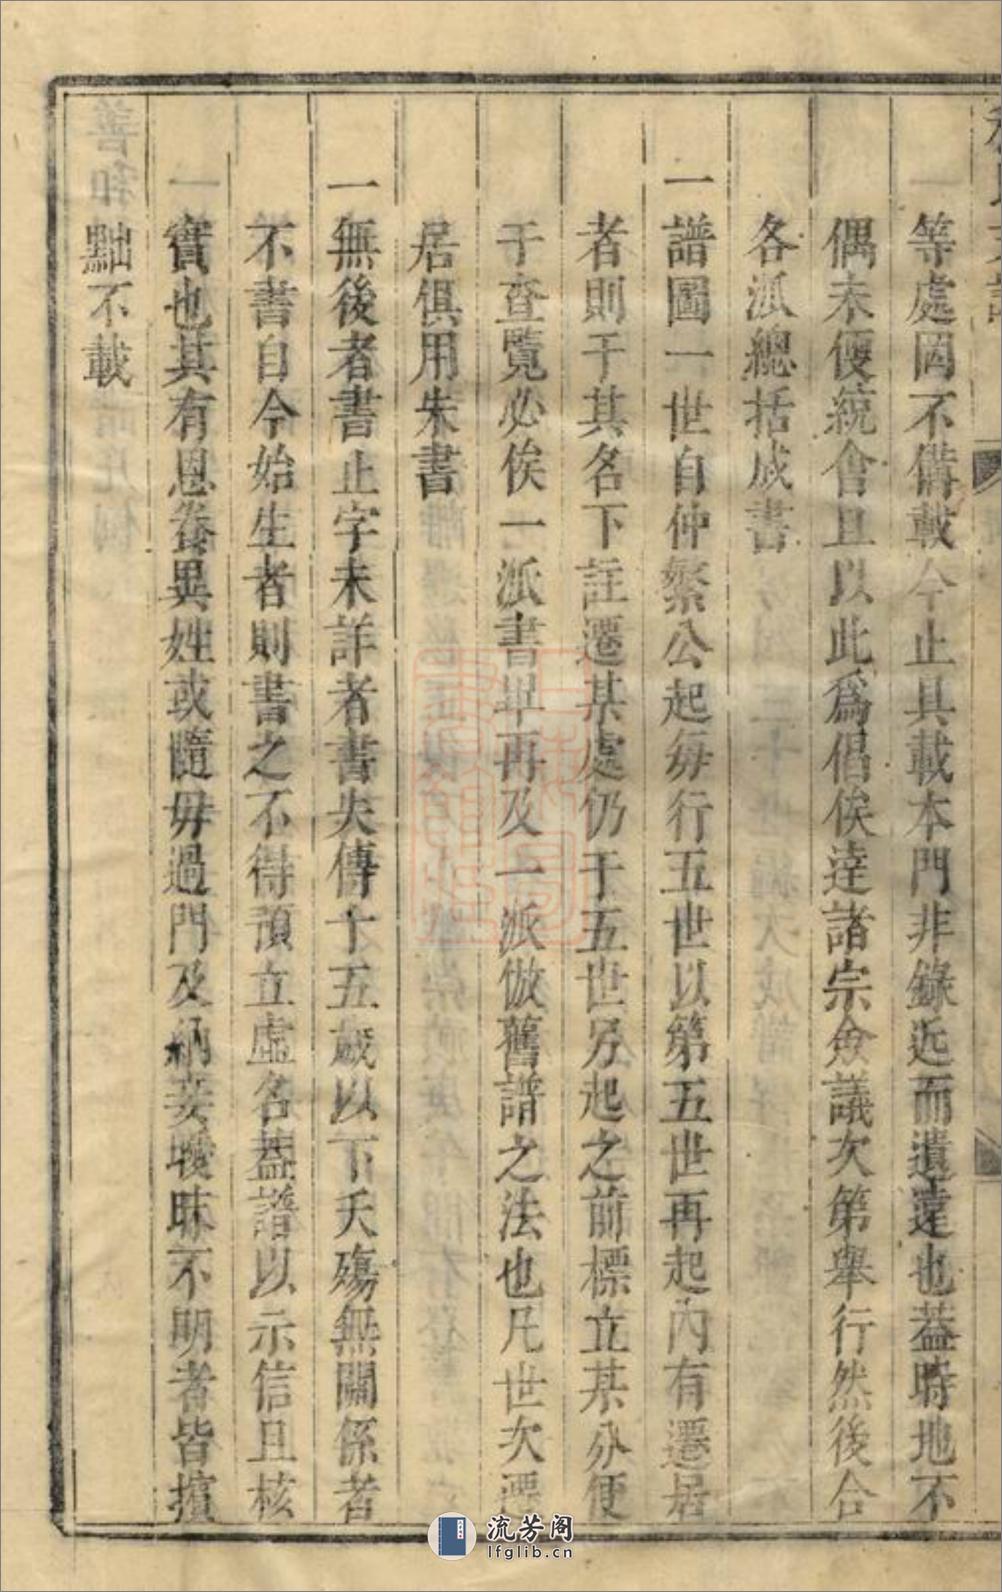 等處固不備載今止具載本門非錄近而遺遠也葢時地不
偶未便統會且以此爲倡俟逹諸宗僉議次第舉行然後合
各派總括成書
一譜圖一世自仲繁公起每行五世以第五世再起內有遷居
者則于其名下註遷某處仍于五世另起之前標立某分便
于查覽必俟一派書畢再及一派倣舊譜之法也凡世次遷
居俱用朱書
一無後者書止字未詳者書失傳十五歲以下夭殤無關係者
不書自今始生者則書之不得預立虛名葢譜以示信且核
實也其有恩養異姓或隨母過門及納妾曖昧不明者皆擯
黜不載
流芳阁
lfglib.cn